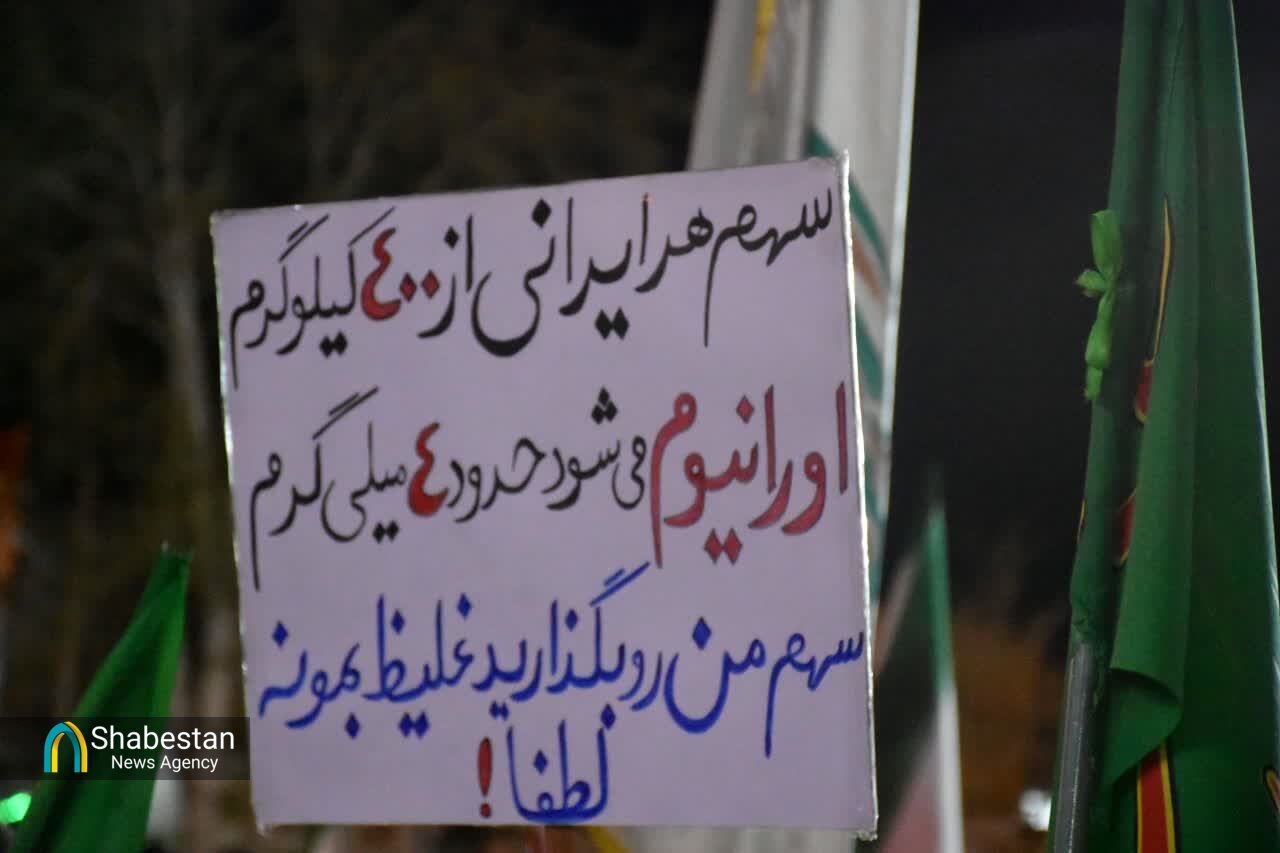 سهم هر ایرانی از ۴۰۰ کیلوگرم
اورانیوم می شود حدود ۴ میلی گرم
سهم من رو بگذارید غلیظ بمونه
لطفاً!
Shabestan
News Agency